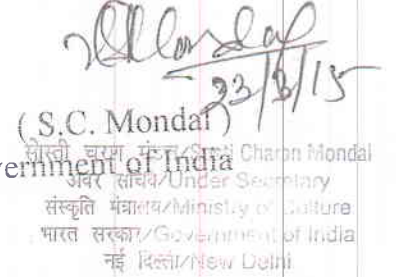 23/3/15
( S.C. Mondal )
ernment of India
Charan Mondal
अवर सचिव/Under Secretary
संस्कृति मंत्रालय/Ministry of Culture
भारत सरकार/Government of India
नई दिल्ली/New Delhi